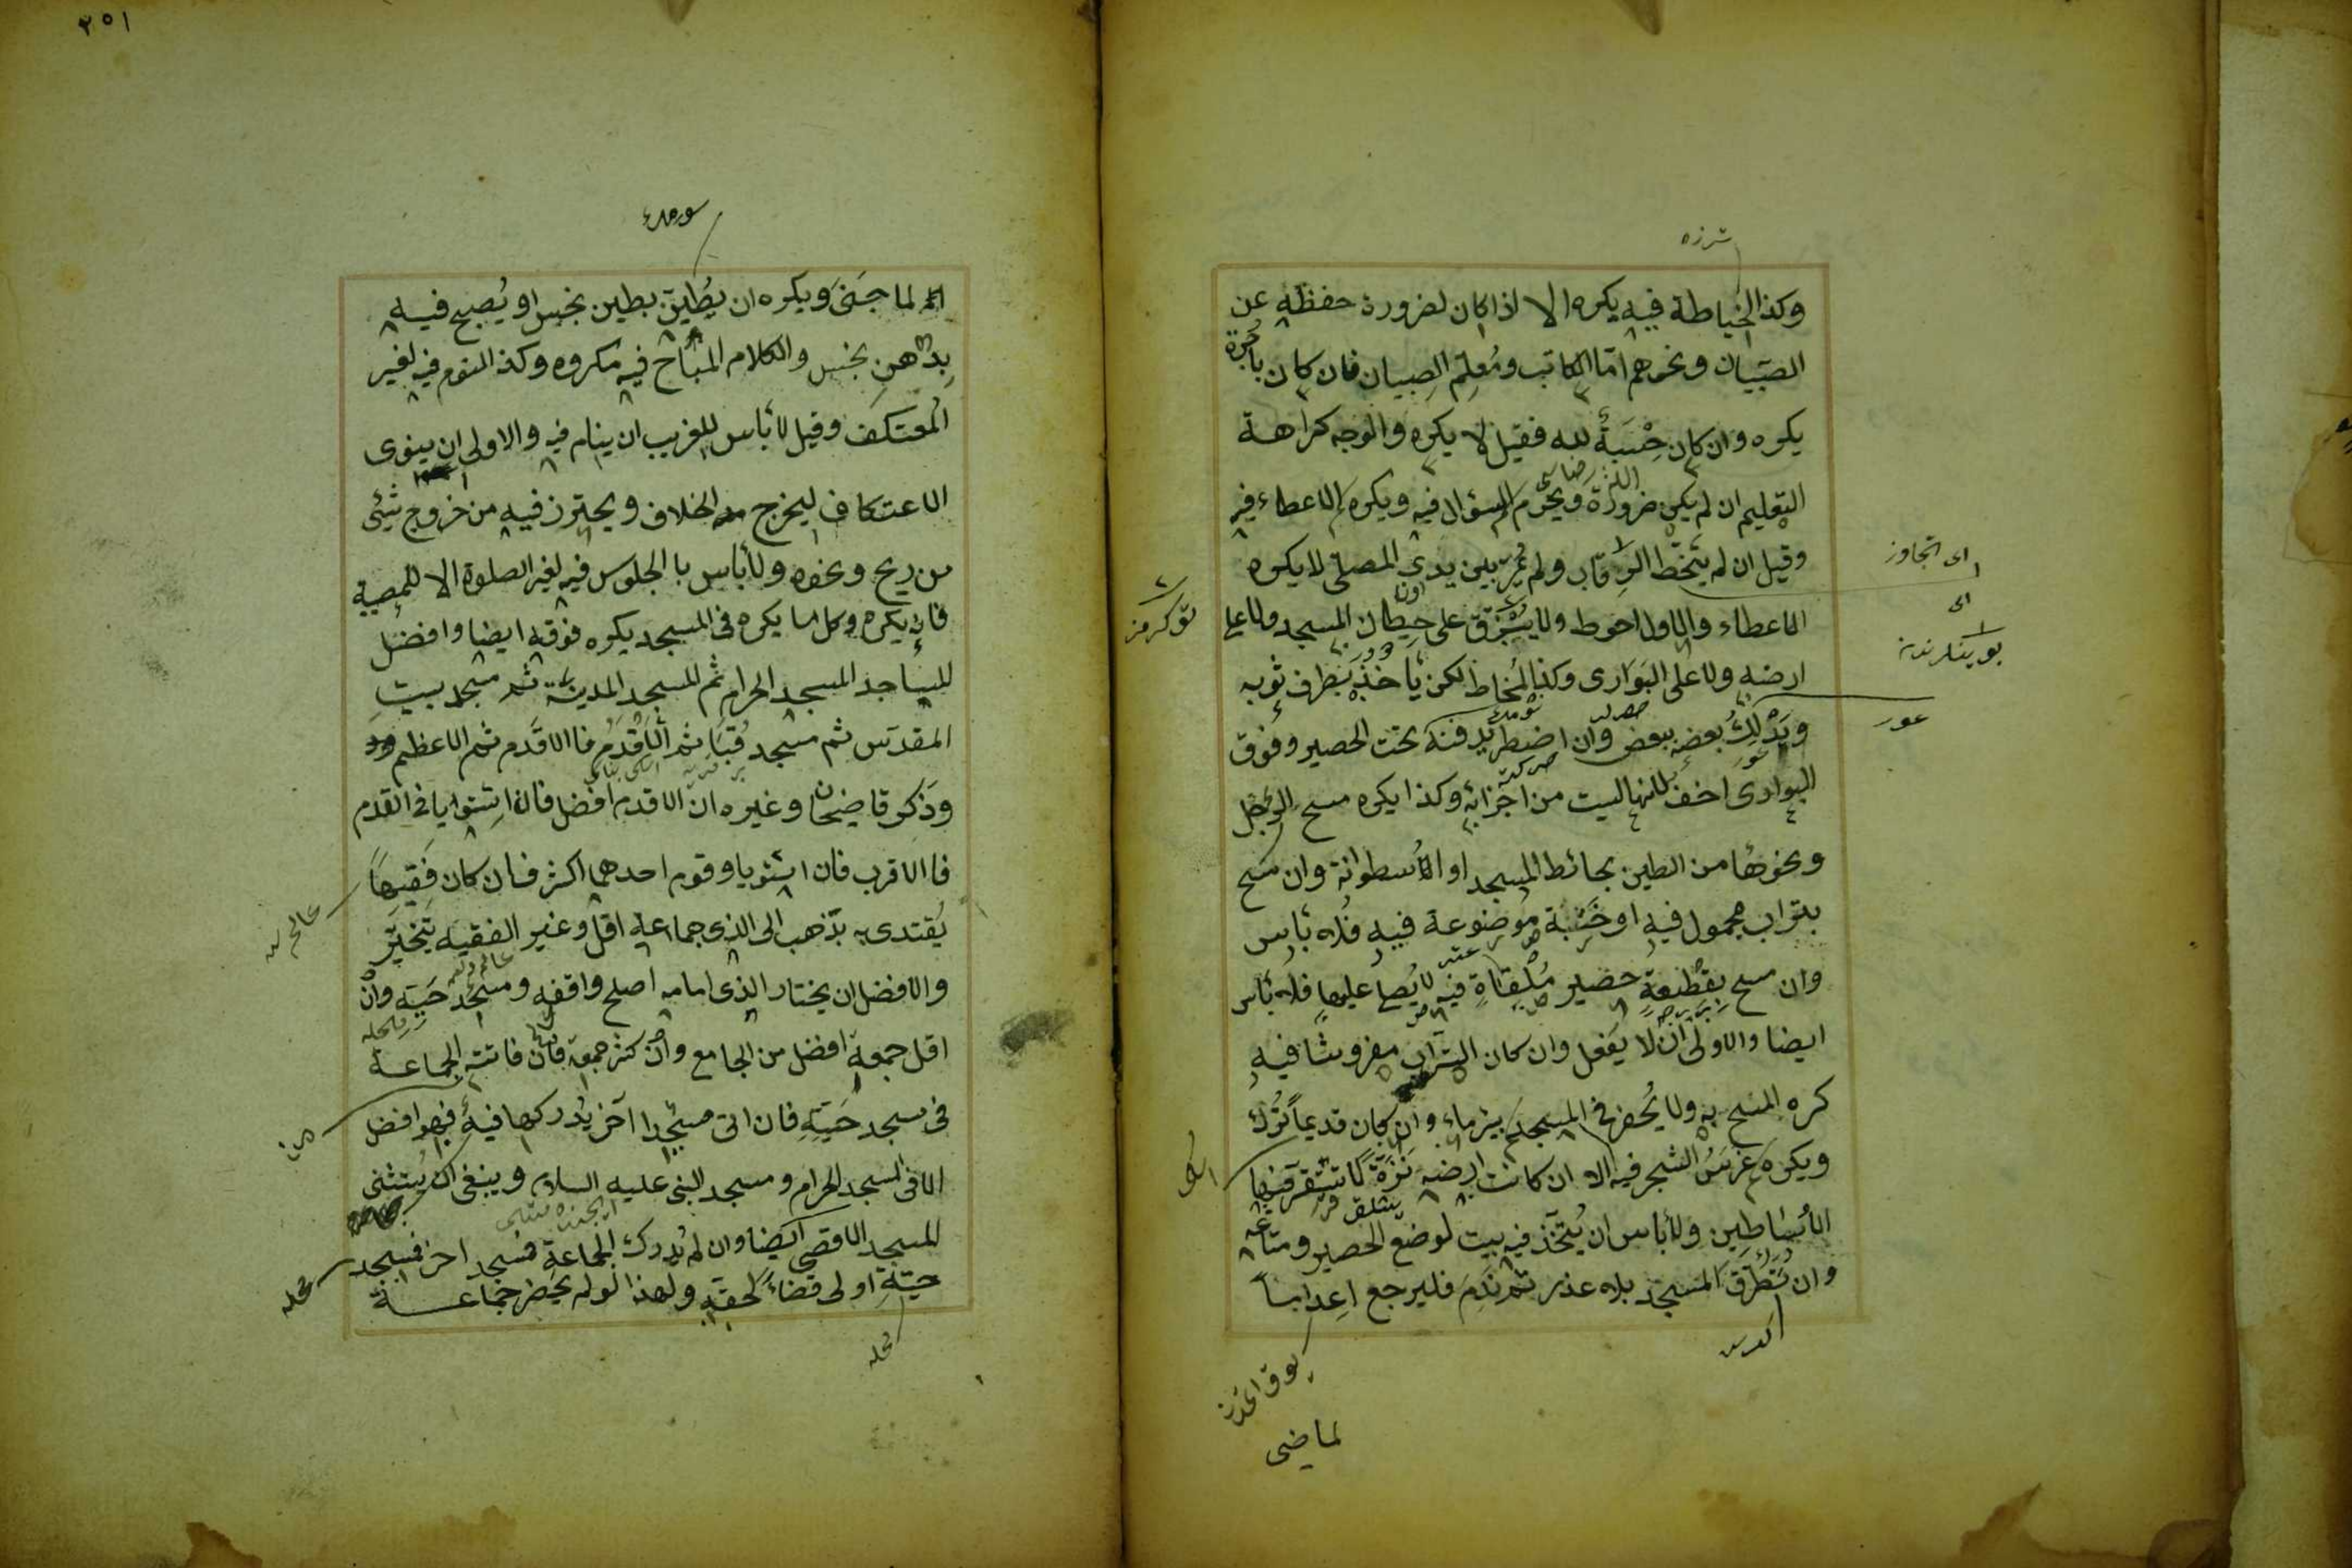 شرزه
وكذا الخياطة فيه يكره الا اذا كان لضرورة حفظه عن
الصبيان ونحوهم امّا الكاتب ومُعلّم الصبيان فان كان باُجرة
يكره وان كان حِسْبَةً لله فقيل لا يكره والوجه كراهة
التعليم ان لم يكن ضرورة ويحرم السؤال فيه ويكره الاعطاء فيه
وقيل ان لم يتخطّ الرقاب ولم يمرّ بين يدى المصلى لا يكره
الاعطاء والاول احوط ولا يبزق على حيطان المسجد ولا على
ارضه ولا على البوارى وكذا المخاط لكن ياخذه بطرف ثوبه
ويدلك بعضه ببعض وان اضطر يدفنه تحت الحصير وفوق
البوارى اخف لانها ليست من اجزائه وكذا يكره مسح الرجل
ونحوها من الطين بحائط المسجد او الاُسطوانة وان مسح
بتراب مجمول فيه او خشبة موضوعة فيه فلا باس
وان مسح بقطعة حصير مُلقاةٍ فيه لا يُصلى عليها فلا باس
ايضا والاولى ان لا يفعل وان كان التراب مفروشا فيه
كره المسح به ولا يُحفر فى المسجد بئر ماء وان كان قديماً تُرك
ويكره غرس الشجر فيه الا ان كانت ارضه نزّة لا تستقر فيها
الاُساطين ولا باس ان يُتّخذ فيه بيت لوضع الحصير ومتاعه
وان تطرّق المسجد بلا عذر ثم ندم فليرجع اعداما
اى تجاوز
اى
عور
لماضى
٢٥١
له لما جَنَى ويكره ان يُطيّن بطين نجس او يُصبح فيه
بدُهنٍ نجس والكلام المباح فيه مكروه وكذا النوم فيه لغير
المُعتكف وقيل لا باس للغريب ان ينام فيه والاولى ان ينوى
الاعتكاف ليخرج من الخلاف ويحترز فيه من خروج شئى
من ريح ونحوه ولا باس با الجلوس فيه لغير الصلوة الا للمصيبة
فانه يكره وكل ما يكره فى المسجد يكره فوقه ايضا وافضل
المساجد المسجد الحرام ثم المسجد المدينة ثم مسجد بيت
المقدّس ثم مسجد قُبَا ثم الاَقدَم فا الاقدم ثم الاعظم
وذكر قاضيخان وغيره ان الاقدم افضل فان استويا فى القدم
فا الاقرب فان استويا وقوم احدهما اكثر فان كان فقيهاً
يُقتدى به يذهب الى الذى جماعته اقل وغير الفقيه يتخيّر
والافضل ان يختار الذى امامه اصلح وافقه ومسجد حيّه وان
اقل جمعة افضل من الجامع وان كثر جمعه فان فاتته الجماعة
فى مسجد حَيّهِ فان اتى مسجدا آخر يُدركها فيه فهو افضل
الا فى المسجد الحرام ومسجد النبى عليه السلام وينبغى ان يُستثنى
المسجد الاقصى ايضا وان لم يُدرك الجماعة فى مسجد اخر فمسجد
حيّهِ اولى قضاءً لحقه ولهذا لو لم يحضر جماعة
محله
محله